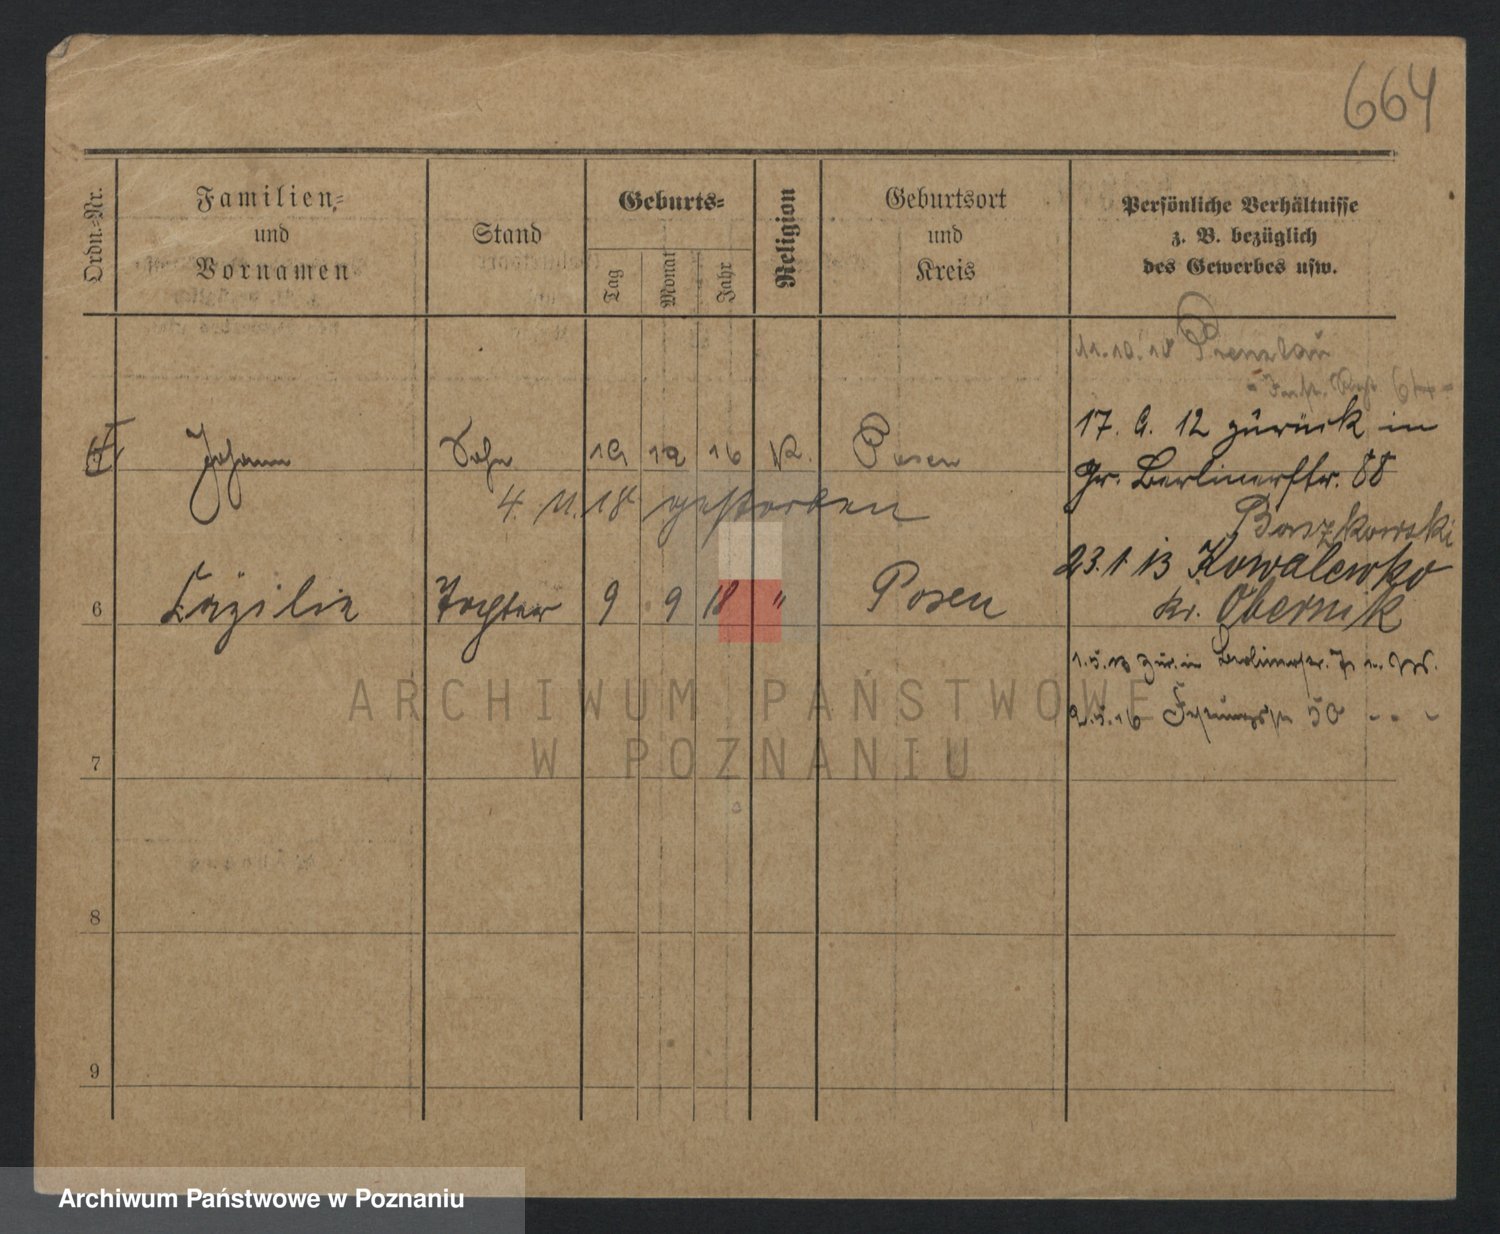 664
Ordn.-Nr.
Familien-
und
Vornamen
Stand
Geburts-
Tag
Monat
Jahr
Religion
Geburtsort
und
Kreis
Persönliche Verhältnisse
z. B. bezüglich
des Gewerbes usw.
11.10.10 Prenzlau
17. 9. 12 zurück in
Gr. Berlinerstr. 88
Johann Sohn 19 12 16 K. Posen
4. 11. 18 gestorben
Baszkowski
23.1 13 Kowalewko
Kr. Obernik
6 Cäzilie Tochter 9 9 18 " Posen
1.5.13 zur. in Berlinerstr.
2.5.16 50
ARCHIWUM PAŃSTWOWE
W POZNANIU
7
8
9
Archiwum Państwowe w Poznaniu